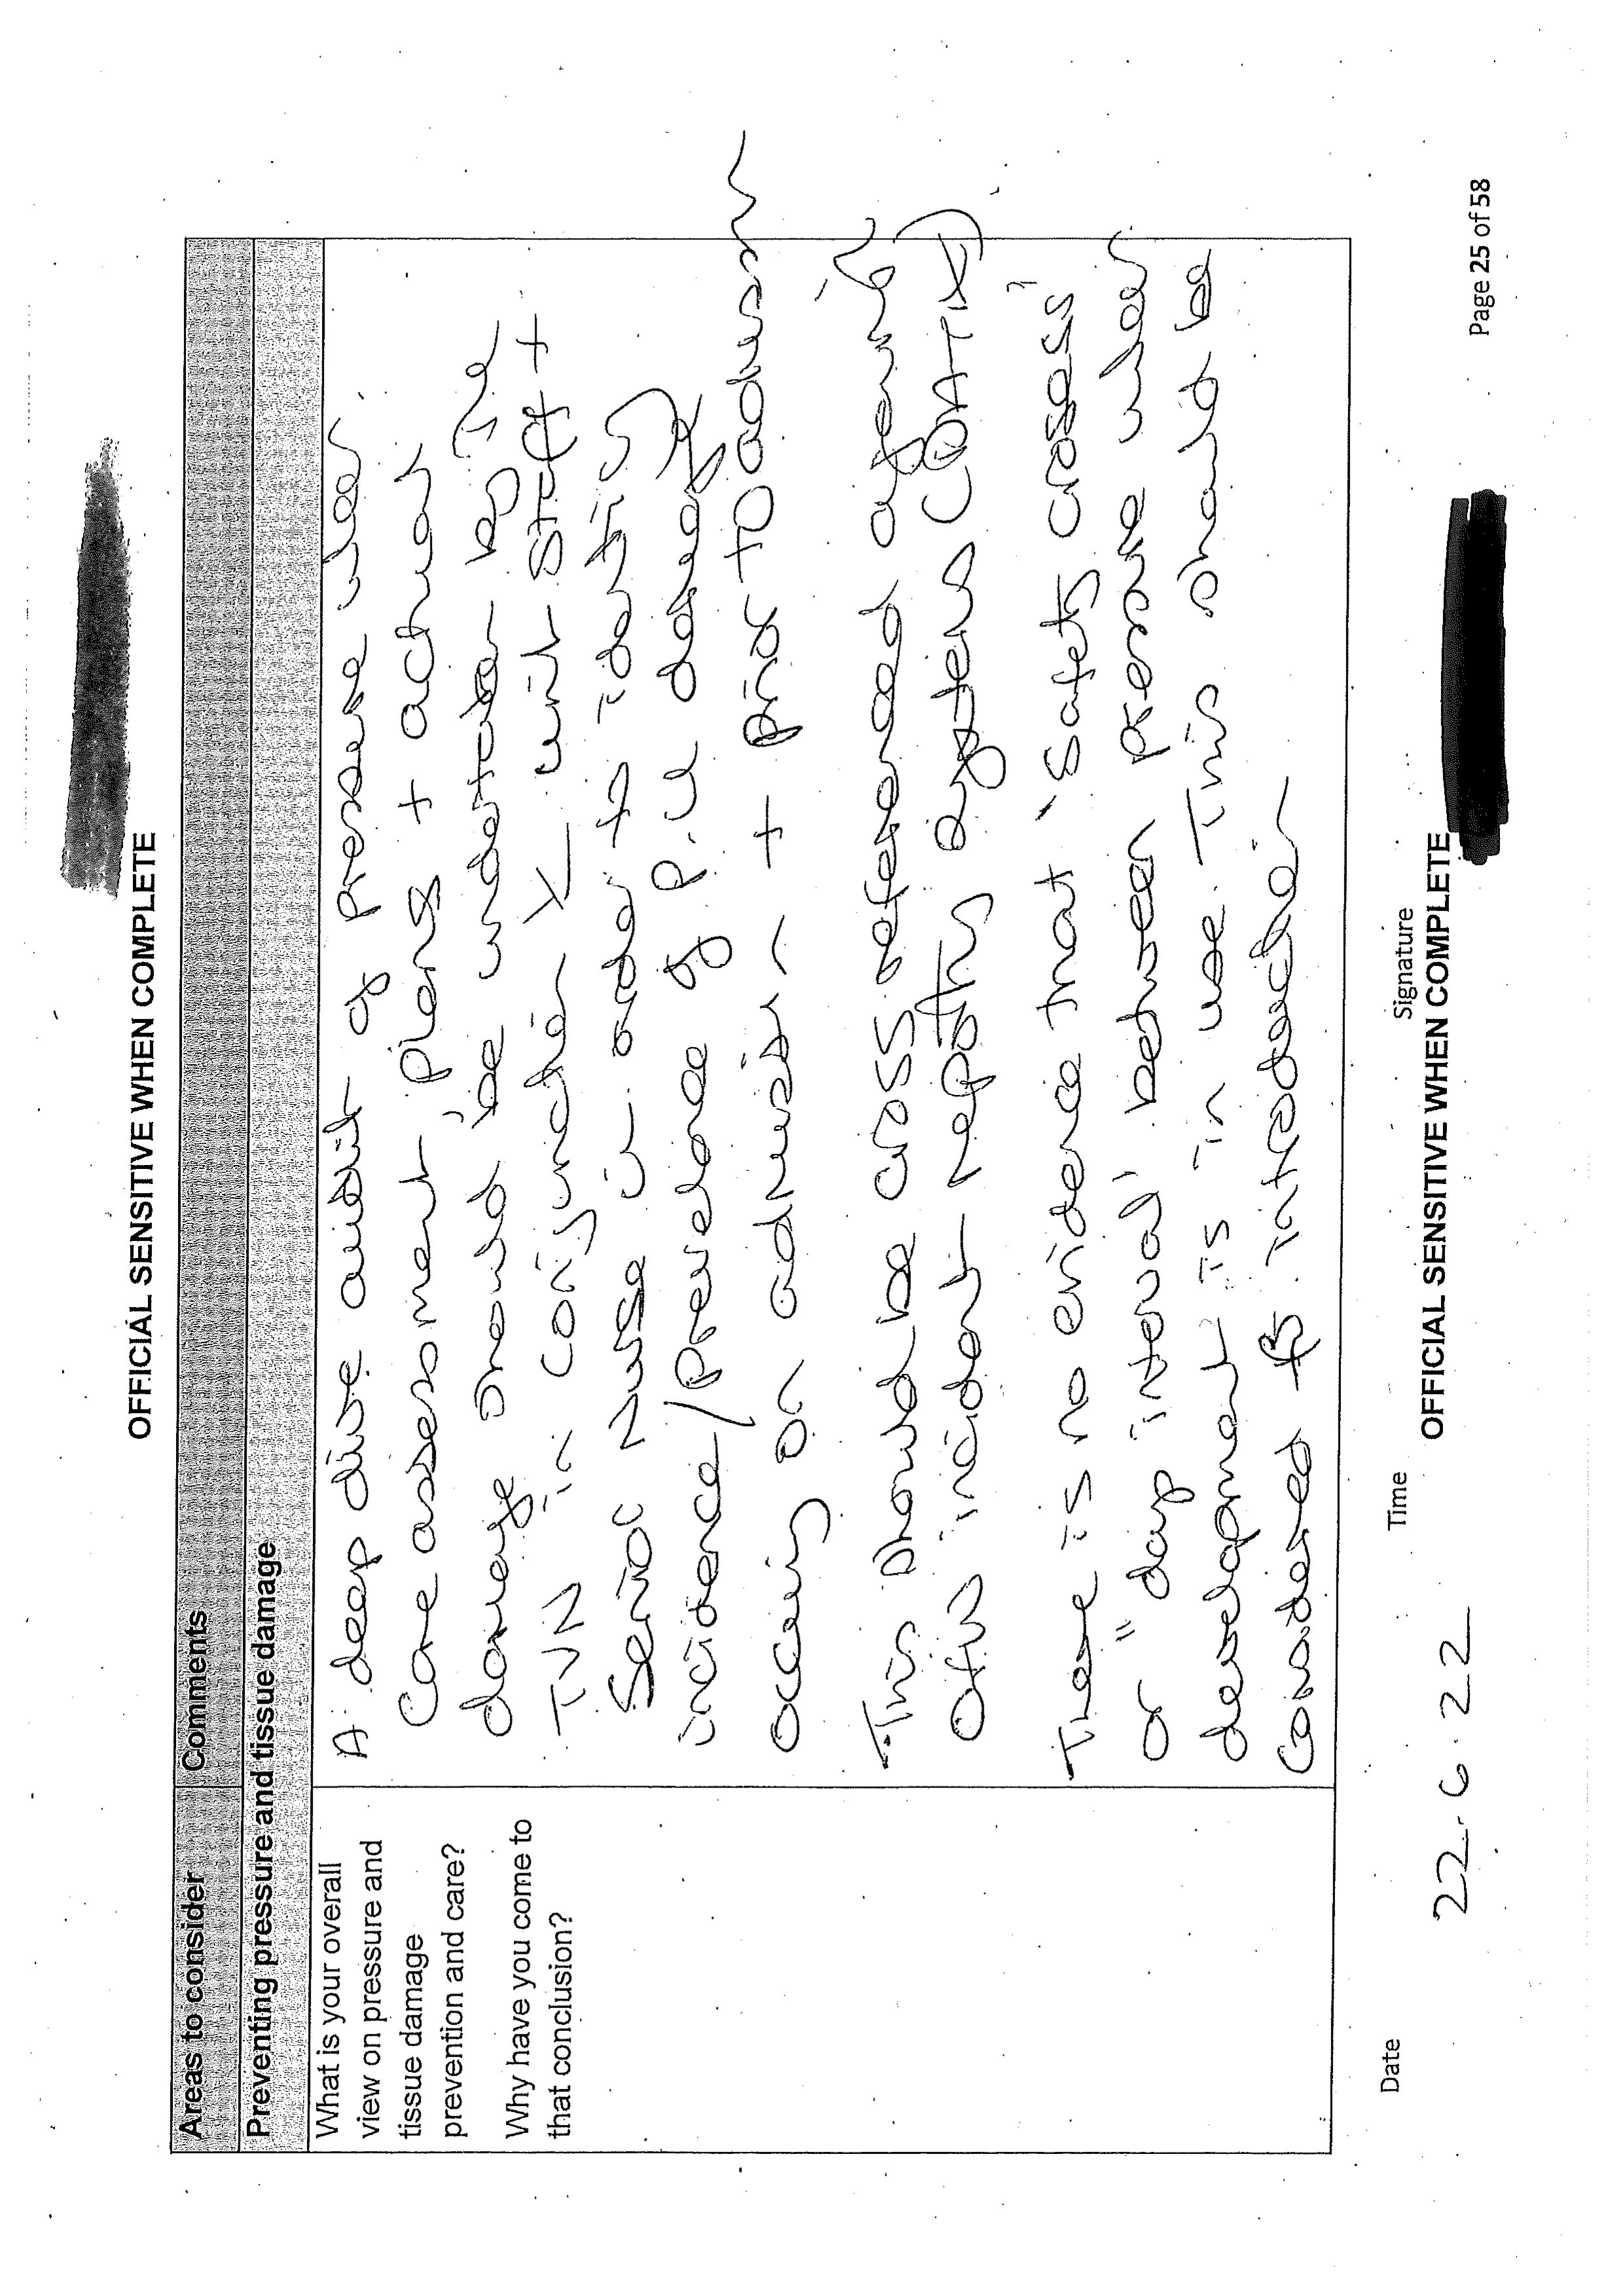 OFFICIAL SENSITIVE WHEN COMPLETE
Areas to consider
Comments
Preventing pressure and tissue damage
What is your overall
view on pressure and
tissue damage
prevention and care?
Why have you come to
that conclusion?
A deep dive audit of pressure ulcer
Care assessment, plans + actual
damage should be undertaken by the
TVN in conjunction unit staff +
Senior Nurse in order to identify
incidence/prevelance of P.U damage
occuring on admission + prior to admission
This should be cross referenced against
ofw incident reporting systems (DATIX)
There is no evidence that 'Safety crosses'
or " day interval' between pressure ulcer
development is in use. This should be
considered for introduction
Date
22.6.22
Time
Signature
OFFICIAL SENSITIVE WHEN COMPLETE
Page 25 of 58